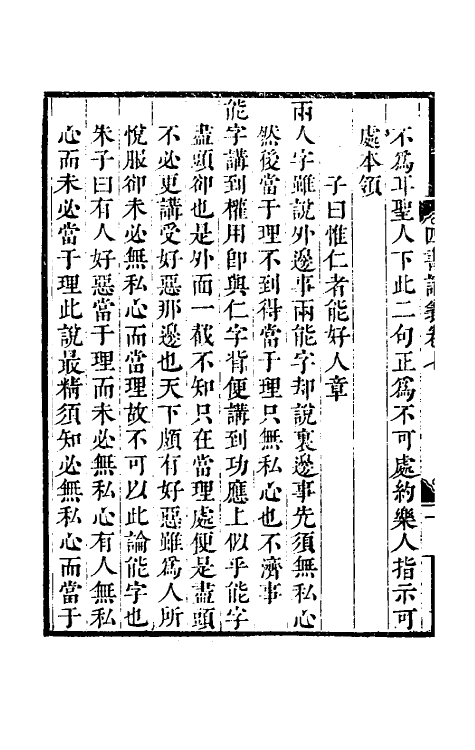 四書講義卷七
不爲耳聖人下此二句正爲不可處約樂人指示可
處本領
子曰惟仁者能好人章
兩人字雖說外邊事兩能字却說裏邊事先須無私心
然後當于理不到得當于理只無私心也不濟事
能字講到權用卽與仁字背便講到功應上似乎能字
盡頭卻也是外面一截不知只在當理處便是盡頭
不必更講受好惡那邊也天下頗有好惡雖爲人所
悅服卻未必無私心而當理故不可以此論能字也
朱子曰有人好惡當于理而未必無私心有人無私
心而未必當于理此說最精須知必無私心而當于